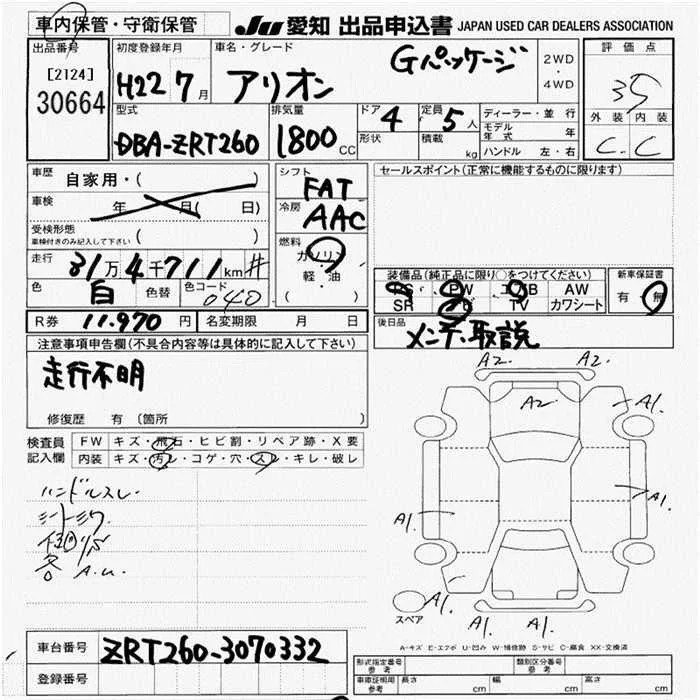 車内保管・守衛保管
JU 愛知 出品申込書 JAPAN USED CAR DEALERS ASSOCIATION
出品番号
[2124]
30664
初度登録年月
H22 7月
車名・グレード
アリオン Gパッケージ
2WD
・
4WD
評価点
35
外装 内装
C. C
型式
DBA-ZRT260
排気量
1800 CC
ドア 4
形状
定員 5人
積載 kg
ディーラー・並行
モデル年式 年
ハンドル 左・右
車歴 自家用・( )
車検 年 月( 日)
受検形態
車検付きのみ記入して下さい ( )
走行 31万4千711km #
色 白 色替 色コード 040
シフト FAT
冷房 AAC
燃料
ガソリン
軽・油
( )
セールスポイント(正常に機能するものに限ります)
装備品(純正品に限り○をつけてください)
PS PW エアB AW
SR ナビ TV カワシート
新車保証書
有 無
R券 11.970円 名変期限 月 日
後日品
メンテ・取説
注意事項申告欄(不具合内容等は具体的に記入して下さい)
走行不明
修復歴 有 (箇所 )
検査員記入欄
FW キズ・飛石・ヒビ割・リペア跡・X要
内装 キズ・汚レ・コゲ・穴・スレ・キレ・破レ
ハンドルスレ
A.U.
A2. A2.
A2
A1.
A1.
A1.
A1.
A1. A1.
スペア
A-キズ E-エクボ U-凹み W-補修跡 S-サビ C-腐食 XX-交換済
車台番号 ZRT260-3070332
登録番号
形式指定番号 参考 類別区分番号 参考
車庫証明用 参考 長さ cm 幅 cm 高さ cm